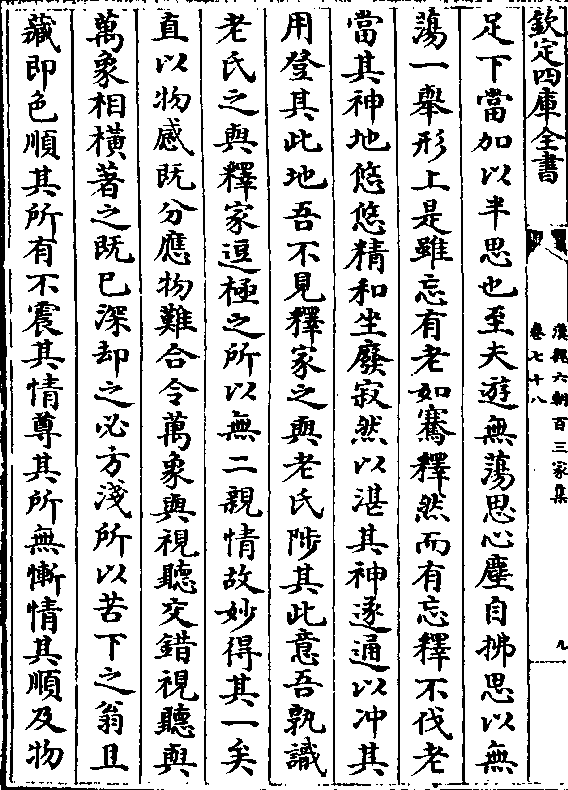 欽定四庫全書
漢魏六朝百三家集
卷七十八
九
足下當加以半思也至夫遊無蕩思心塵自拂思以無
蕩一舉形上是雖忘有老如騫釋然而有忘釋不伐老
當其神地悠悠精和坐廢寂然以湛其神遂通以冲其
用登其此地吾不見釋家之與老氏陟其此意吾孰識
老氏之與釋家逗極之所以無二親情故妙得其一矣
直以物感既分應物難合令萬象與視聽交錯視聽與
萬象相橫著之既已深却之必方淺所以苦下之翁且
藏即色順其所有不震其情尊其所無慚情其順及物